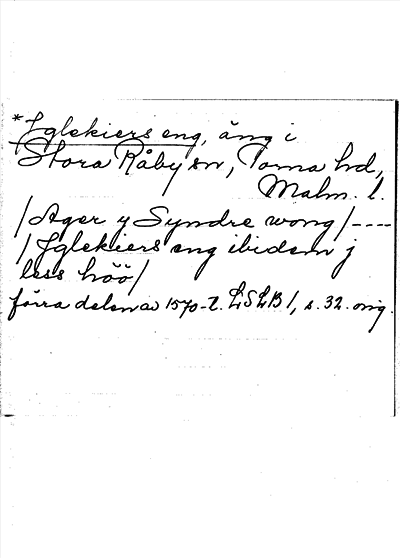 *Iglekiers eng, äng i
Stora Råby sn, Torna hd,
Malm. l.
/Ager y Syndre wong/----
/Iglekiers eng ibidem j
less höö/
förra delen av 1570-t. LSLB1, s. 32. orig.